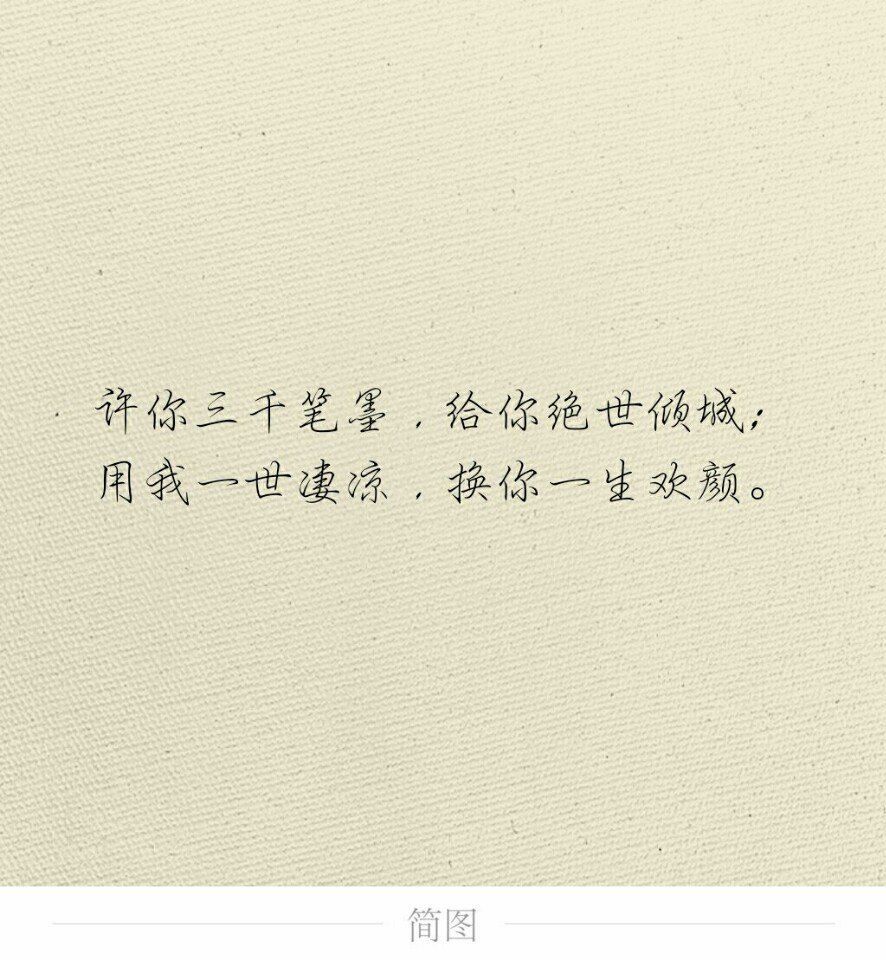 许你三千笔墨，给你绝世倾城；
用我一世凄凉，换你一生欢颜。
简图